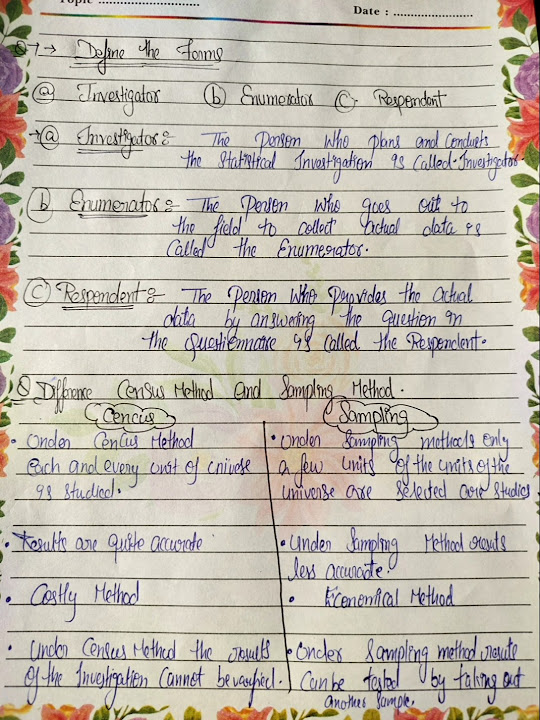 Topic ............................
Date : ........................
Q-1 → Define the Forms
(a) Investigator (b) Enumerator (c) Respondent
→(a) Investigator :- The Person Who plans and conducts
the Statistical Investigation is Called. Investigator.
(b) Enumerator :- The Person Who goes out to
the field to collect actual data is
Called the Enumerator.
(c) Respondent :- The Person Who Provides the actual
data by answering the question in
the Questionnaire is Called the Respondent.
Q Difference Census Method and Sampling Method.
Cencus
Sampling
• Under Cencus Method
each and every unit of universe
is studied.
• Under Sampling methods only
a few units of the units of the
universe are Selected are Studies
• Results are quite accurate
• Under Sampling Method results
less accurate.
• Costly Method
• Economical Method
• Under Census Method the results
of the Investigation Cannot be varified.
• Under Sampling method results
Can be tested by taking out
another Sample.